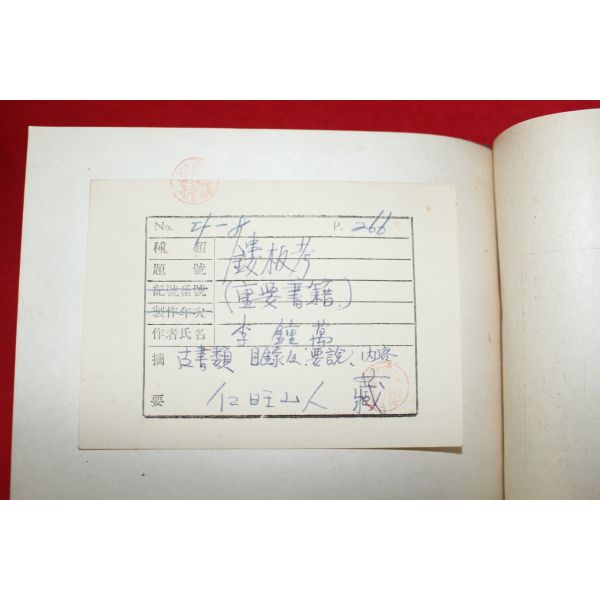 No. 21-8 P. 266
種類 鏤板考
題號
記號番號 (重要書籍)
製作年次
作者氏名 李鍾萬
摘要 古書類 目錄 및 要說, 內容
仁旺山人 藏